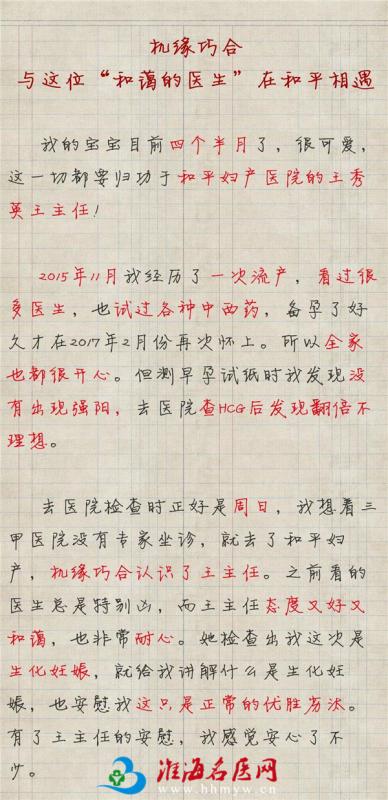 机缘巧合
与这位“和蔼的医生”在和平相遇
我的宝宝目前四个半月了，很可爱，
这一切都要归功于和平妇产医院的王秀
英王主任！
2015年11月我经历了一次流产，看过很
多医生，也试过各种中西药，备孕了好
久才在2017年2月份再次怀上。所以全家
也都很开心。但测早孕试纸时我发现没
有出现强阳，去医院查HCG后发现翻倍不
理想。
去医院检查时正好是周日，我想着三
甲医院没有专家坐诊，就去了和平妇
产，机缘巧合认识了王主任。之前看的
医生总是特别凶，而王主任态度又好又
和蔼，也非常耐心。她检查出我这次是
生化妊娠，就给我讲解什么是生化妊
娠，也安慰我这只是正常的优胜劣汰。
有了王主任的安慰，我感觉安心了不
少。
淮海名医网
www.hhmyw.com